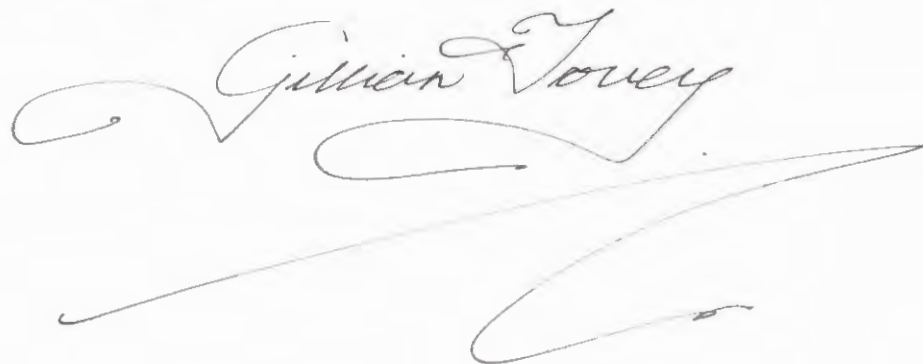 Gillian Tovey